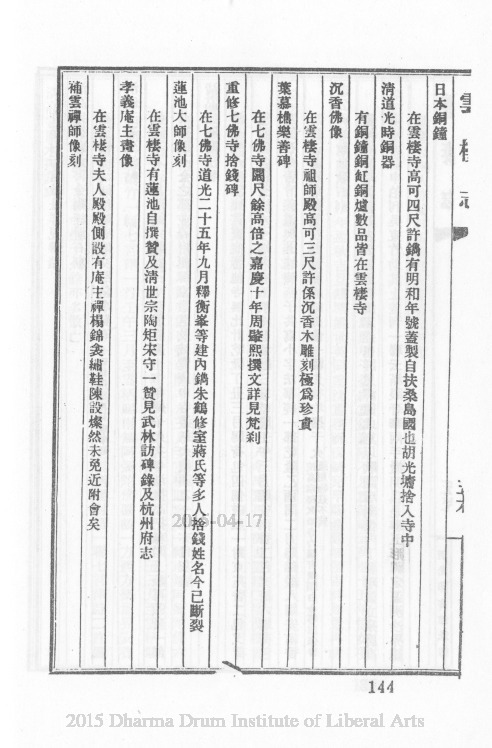 雲棲志
日本銅鐘
在雲棲寺高可四尺許鐫有明和年號蓋製自扶桑島國也胡光墉捨入寺中
清道光時銅器
有銅鐘銅缸銅爐數品皆在雲棲寺
沉香佛像
在雲棲寺祖師殿高可三尺許係沉香木雕刻極爲珍貴
葉慕樵樂善碑
在七佛寺闊尺餘高倍之嘉慶十年周肇熙撰文詳見梵刹
重修七佛寺捨錢碑
在七佛寺道光二十五年九月釋衡峯等建內鐫朱鶴修室蔣氏等多人捨錢姓名今已斷裂
蓮池大師像刻
在雲棲寺有蓮池自撰贊及清世宗陶矩宋守一贊見武林訪碑錄及杭州府志
孝義庵主畫像
在雲棲寺夫人殿殿側設有庵主禪榻錦衾繡鞋陳設燦然未免近附會矣
補雲禪師像刻
144
2015-04-17
2015 Dharma Drum Institute of Liberal Arts